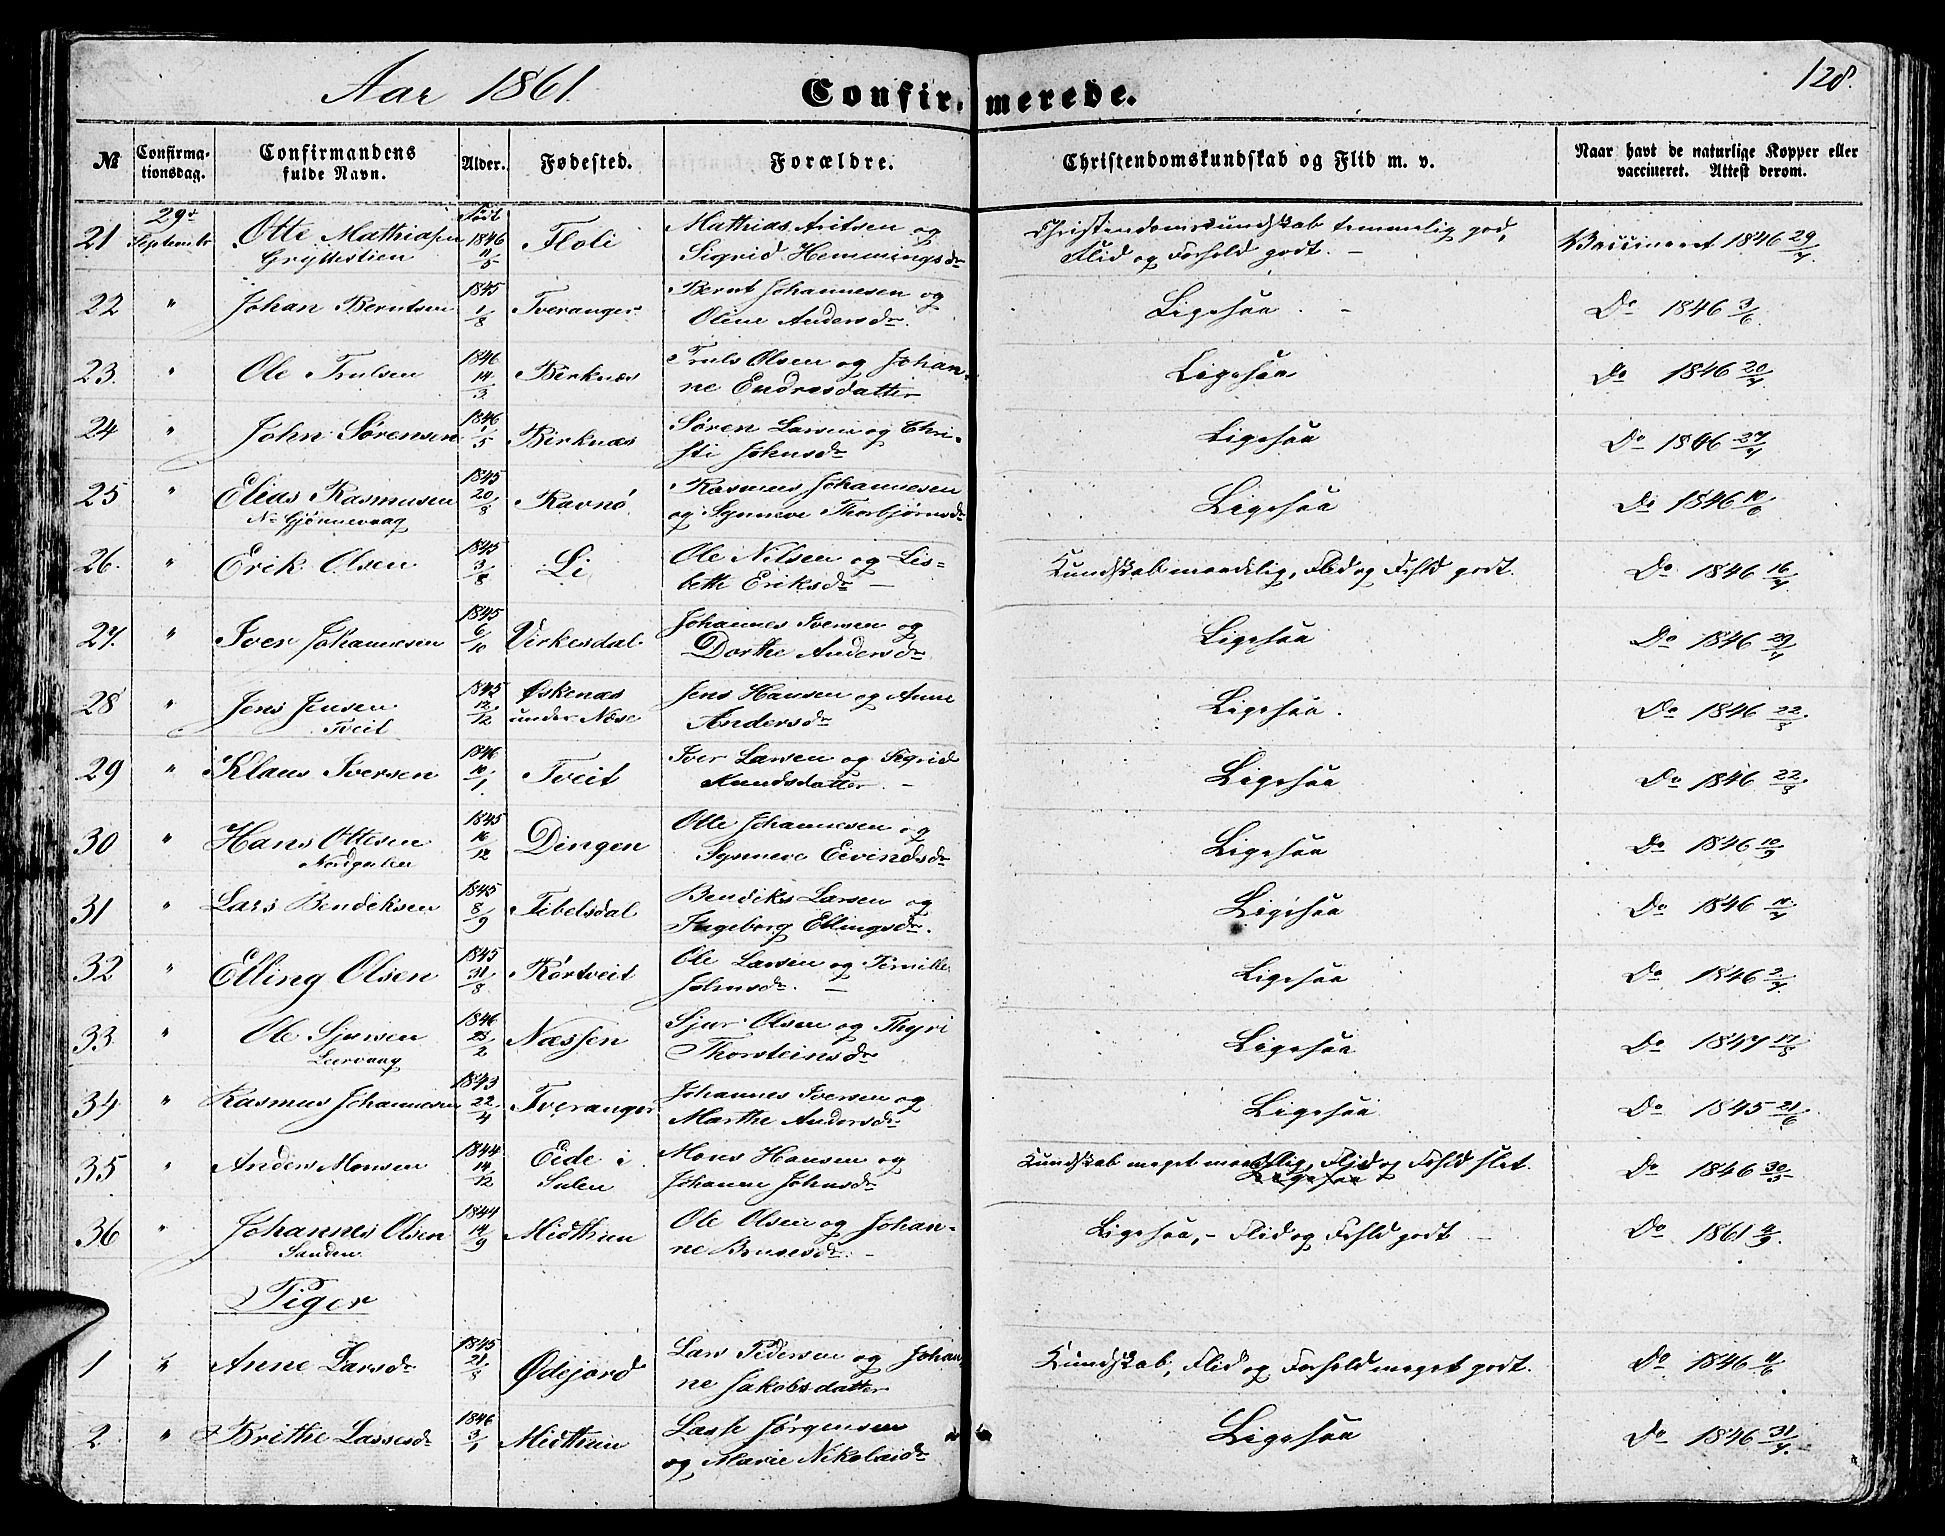 Aar 1861.
Confirmerede.
128.
№
Confirma-
tionsdag.
Confirmandens
fulde Navn.
Alder.
Fødested.
Forældre.
Christendomskundskab og Flid m. v.
Naar havt de naturlige Kopper eller
vaccineret. Attest derom.
21 29de Septembr Otte Mathiasen Født 1846 11/5 Floli Mathias Aritsen og Christendomskundskab temmelig god, Vaccineret 1846 29/7.
Gryttestien Sigrid Hemmingsdr Flid og Forhold godt. –
22 " Johan Berntsen 1845 1/8 Tveranger Bernt Johannesen og Ligesaa. – Do 1846 3/6.
Oline Andersdr.
23. " Ole Trulsen 1846 14/3 Birknæs Truls Olsen og Johan- Ligesaa Do 1846 20/7.
ne Endresdatter
24 " John Sørensen 1846 1/5 Birknæs Søren Larsen og Chri- Ligesaa Do 1846 27/7
sti Johnsdr
25 " Elias Rasmusen 1845 20/8 Ravnø Rasmus Johannesen Ligesaa Do 1846 10/6
No Gjønnevaag og Synneve Thorbjørnsdr
26. " Erik Olsen 1845 3/8 Li Ole Nilsen og Lis- Kundskab maadelig, Flid og Forhld godt. Do 1846 16/7
beth Eriksdr –
27. " Iver Johannesen 1845 6/10 Virkesdal Johannes Iversen og Ligesaa Do 1846 29/7
Dorthe Andersdr
28 " Jens Jensen 1845 12/12 Øskenæs Jens Hansen og Anne Ligesaa. Do 1846 22/8.
Tveit under Næse Andersdr
29 " Klaus Iversen 1846 10/1 Tveit Iver Larsen og Sigrid Ligesaa Do 1846 22/8.
Knudsdatter. –
30 " Hans Ottesen 1845 16/12 Dingen Otte Johannesen og Ligesaa Do 1846 10/9
Synneve Eivindsdr
31 " Lars Bendiksen 1845 8/9 Tibelsdal Bendiks Larsen og Ligesaa Do 1846 11/7
Ingeborg Ellingsdr.
32 " Elling Olsen 1845 31/8 Rørtveit Ole Larsen og Pernille Ligesaa Do 1846 2/7.
Johnsdr. –
33 " Ole Sjursen 1846 23/2 Næssen Sjur Olsen og Thyri Ligesaa Do 1847 17/8
Leervaag Thorsteinsdr
34 " Rasmus Johannesen 1843 22/4 Tveranger Johannes Iversen og Ligesaa Do 1845 21/6
Marthe Andersdr
35 " Anders Monsen 1844 14/12 Eide i Mons Hansen og Kundskab meget maadelig, Flid og Forhld slet. Do 1846 30/5
Sulen Johanne Johnsdr Ligesaa
36 " Johannes Olsen 1844 14/9 Midthun Ole Olsen og Johan- Ligesaa, – Flid og Forhld godt – Do 1861 2/9.
Sanden. ne Brusesdr. –
Piger
1 " Anne Larsdr 1845 21/8 Ødejord Lars Pedersen og Johan Kundskab, Flid og Forhold meget godt. Do 1846 11/6
ne Jakobsdatter
2 " Brithe Lassesdr 1846 3/1 Midthun Lasse Jørgensen Ligesaa Do 1846 31/7.
og Marie Nikolaidr